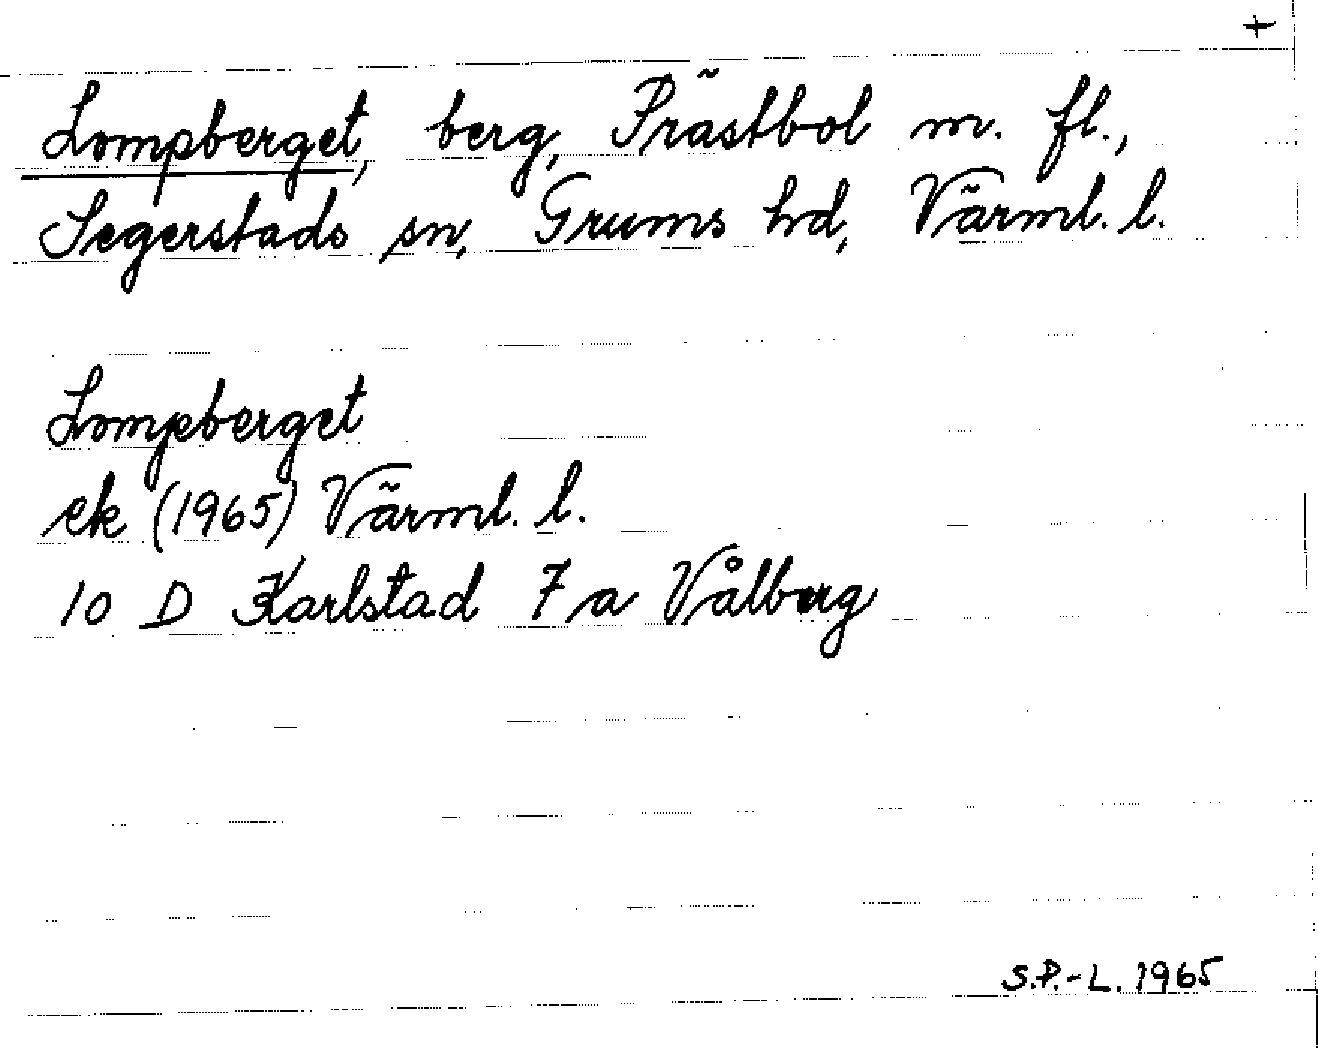 +
Lompberget, berg, Prästbol m. fl.,
Segerstads sn, Grums hd, Värml. l.
Lompberget
ek (1965) Värml. l.
10 D Karlstad 7 a Vålberg
S.P.-L. 1965